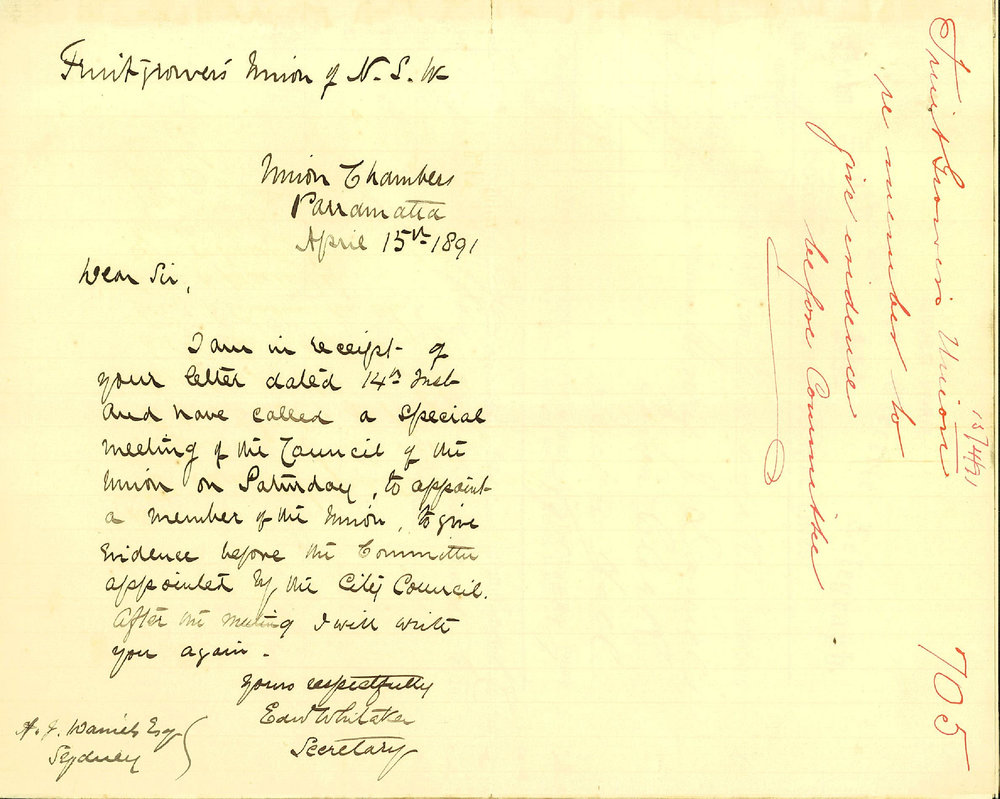 Fruitgrowers Union of N. S. W
Union Chambers
Parramatta
April 15th 1891
Dear Sir,
I am in receipt of
your letter dated 14th Inst
and have called a special
meeting of the Council of the
Union on Saturday, to appoint
a member of the Union, to give
evidence before the Committee
appointed by the City Council.
After the meeting I will write
you again.
Yours respectfully
Edw Whitaker
Secretary
H. J. Daniels Esq
Sydney
Fruit Growers Union
15/4/91
re member to
give evidence
before Committee
705